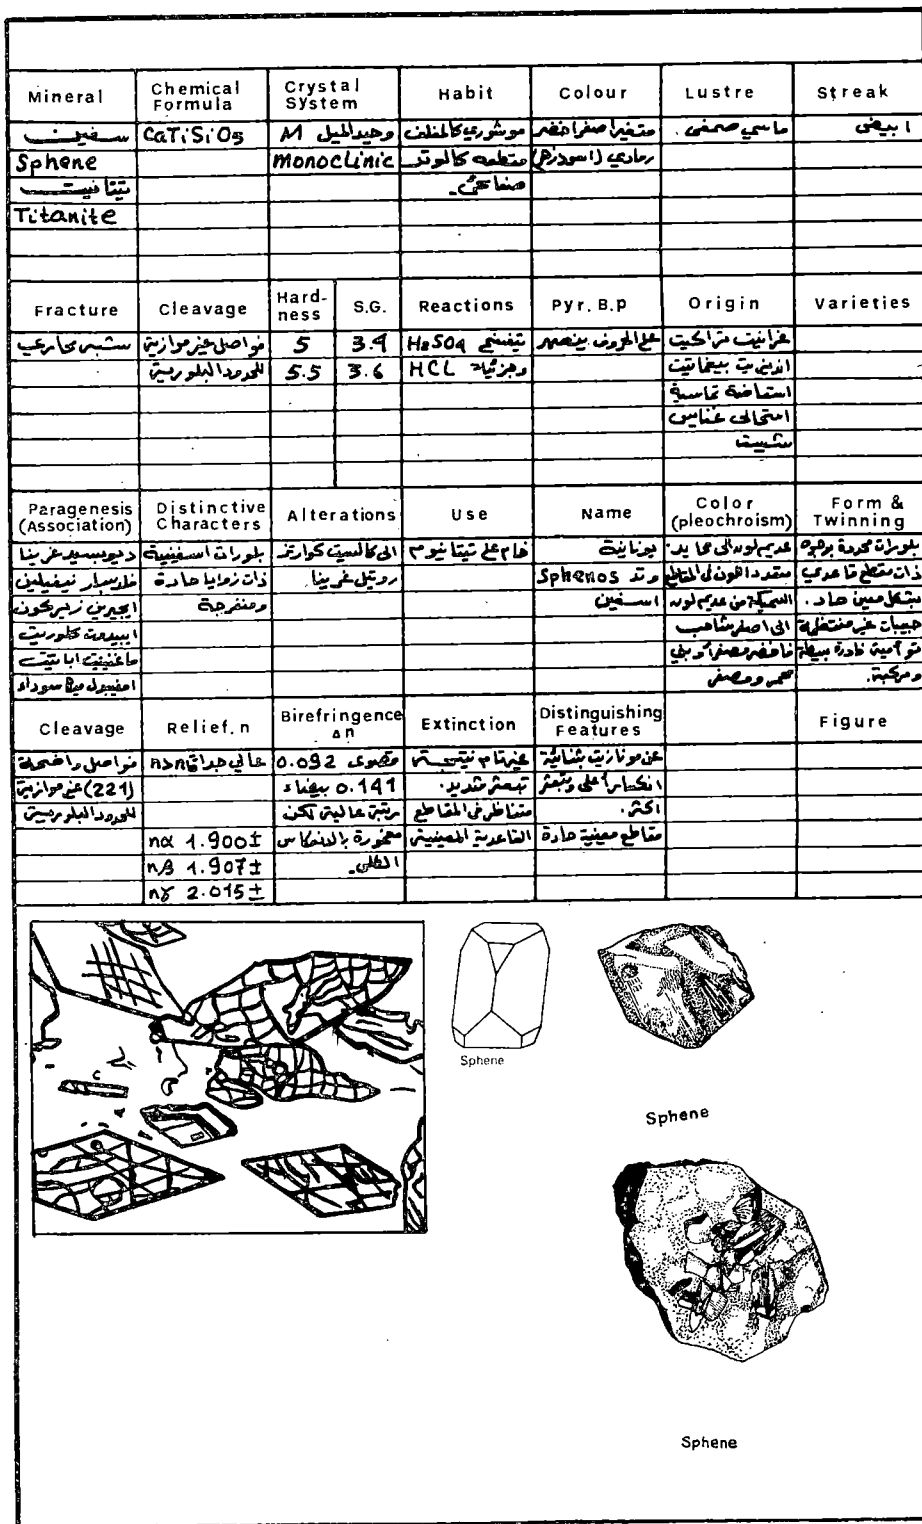 Mineral Chemical Formula Crystal System Habit Colour Lustre Streak
سفين CaTiSiO5 وحيد الميل M موشوري كالمغلف متغير اصفر اخضر ماسي صمغي. ابيض
Sphene Monoclinic متطعه كالوتد رمادي (اسود زهر)
تيتانيت صفائحي.
Titanite
Fracture Cleavage Hardness S.G. Reactions Pyr. B.p Origin Varieties
شبه محارعي فواصل غير موازية 5 3.4 H2SO4 يتفسخ على الجوف ينصهر غرانيت تراكيت
للحدود البلورية 5.5 3.6 HCL وجزئيا اندزيت بيغماتيت
استحاضة تماسية
استحالي غنايس
شيست
Paragenesis (Association) Distinctive Characters Alterations Use Name Color (pleochroism) Form & Twinning
ديوبسيد غرينا بلورات اسفينية الى كالسيت كوارتز خام على تيتانيوم يونانية عديم لون الى محايد. بلورات محددة بوجوه
فلدسبار نيفيلين ذات زوايا حادة روتيل غرينا. Sphenos وتد متعدد الهون في المقاطع ذات مقطع قاعدي
ايجيرين زيركون ومنفرجة اسفين السميكة من عديم لون بشكل معين حاد.
ايبيدوت كلوريت الى اصفر شاحب حبيبات غير منتظمة
ماغنيتيت اباتيت توأمية نادرة بسيطة
امفيبول ميكا سوداء محمر ومصفر ومركبة.
Cleavage Relief. n Birefringence Δn Extinction Distinguishing Features Figure
فواصل واضحة عالي جدا n>n 0.092 قصوى غير تام نتيجة عن مونازيت بثنائية
(221) غير موازية 0.141 بيضاء تبعثر شديد. انكسار أعلى وتبعثر
للحدود البلورية رتبة عالية لكن متناظر في المقاطع اكثر.
nα 1.900± مغمورة بالانعكاس القاعدية المعينية مقاطع معينية حادة
nβ 1.907± الكلي.
nγ 2.015±
Sphene
Sphene
Sphene